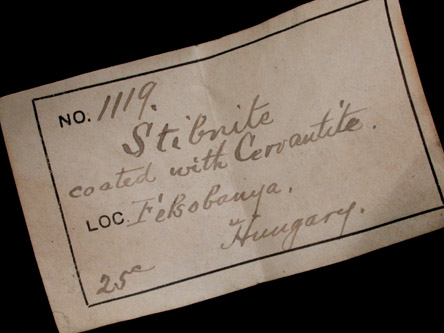 NO. 1119.
Stibnite
coated with Cervantite.
LOC. Felsobanya.
Hungary.
25c